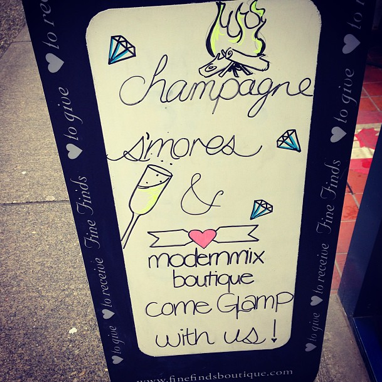 champagne
s'mores
&
modernmix
boutique
come Glamp
with us!
www.finefindsboutique.com
to give ♥ to receive Fine Finds ♥ to give ♥ to receive
to give ♥ to receive Fine Finds ♥ to give ♥ to receive